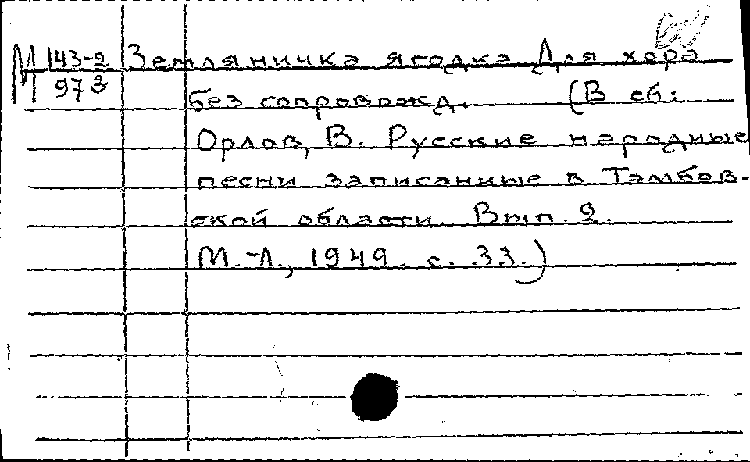 М 143-2 Земляничка ягодка Для хора
973 без сопровожд. (В сб:
Орлов, В. Русские народные
песни записанные в Тамбов-
ской области Вып. 2.
М.-Л., 1949. с. 33.)